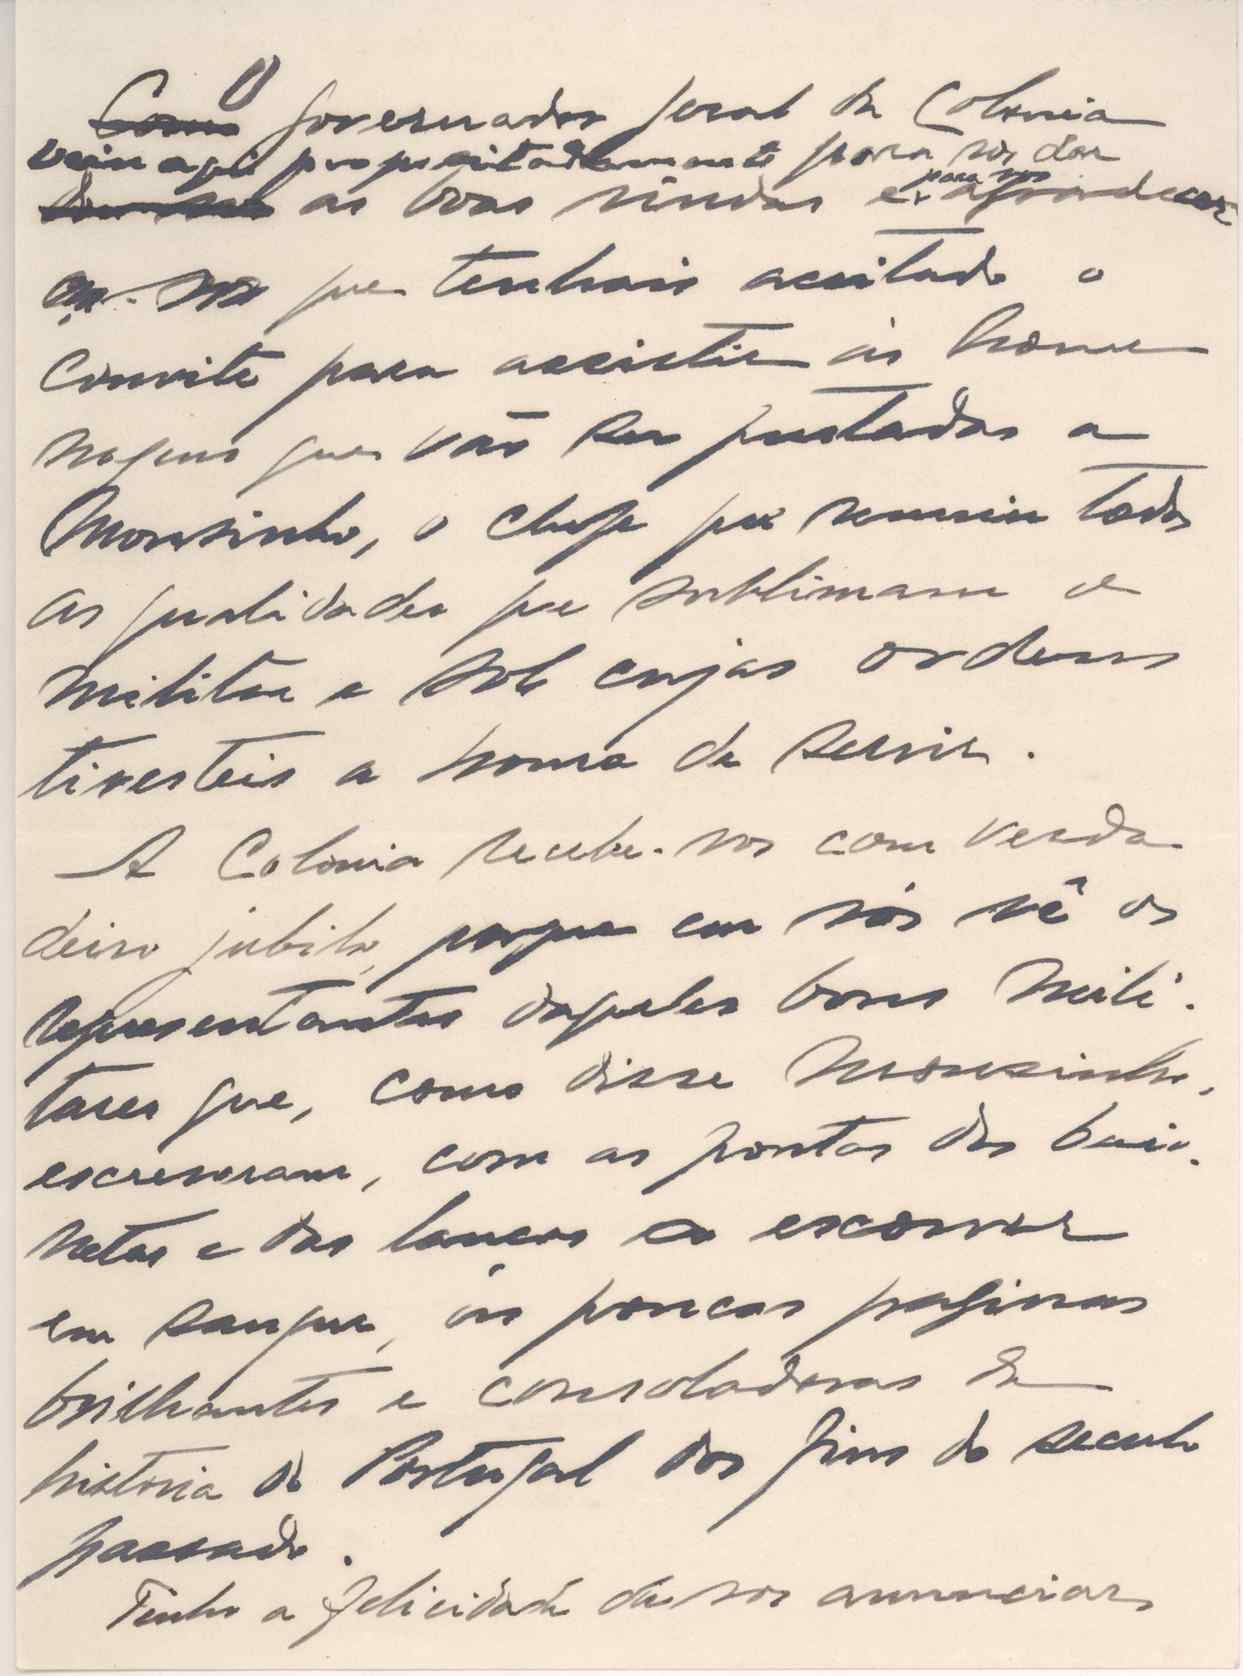 ~~Como~~ O governador geral da Colonia
veio aqui propositadamente para vos dar
~~dou-vos~~ as boas vindas e para vos agradecer
que tenhais aceitado o
convite para assistir ás home
nagens que vão ser prestadas a
Mousinho, o chefe que reuniu todas
as qualidades que sublimam o
militar e sob cujas ordens
tivesteis a honra de servir.
A Colonia recebe-vos com verda
deiro jubilo, porque em vós vê os
representantes daqueles bons mili-
tares que, como disse Mousinho,
escreveram, com as pontas das baio-
netas e das lanças a escorrer
em sangue, as poucas paginas
brilhantes e consoladoras da
historia de Portugal dos fins do seculo
passado.
Tenho a felicidade de vos anunciar